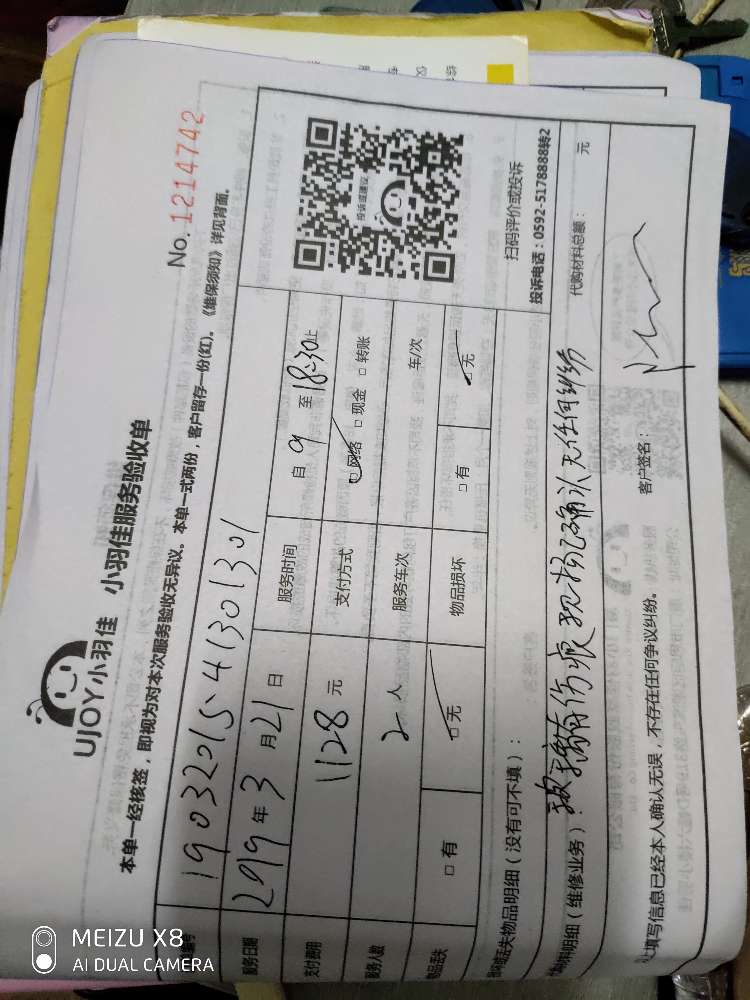 No. 1214742
UJOY小羽佳 小羽佳服务验收单
本单一经核签，即视为对本次服务验收无异议。本单一式两份，客户留存一份(红)。《维保须知》详见背面。
号 1903201541301301
服务日期 2019年3月21日 服务时间 自9至18:30止
支付费用 1128元 支付方式 □网络 □现金 □转账
服务人数 2人 服务车次 车/次
物品丢失 □有 □无 物品损坏 □有 □无
投诉或建议
扫码评价或投诉
投诉电话：0592-5178888转2
损坏或丢失物品明细（没有可不填）：
材料明细（维修业务）： 代购材料总额： 元
有伤痕 确认无任何纠纷
上填写信息已经本人确认无误，不存在任何争议纠纷。 客户签名：
MEIZU X8
AI DUAL CAMERA